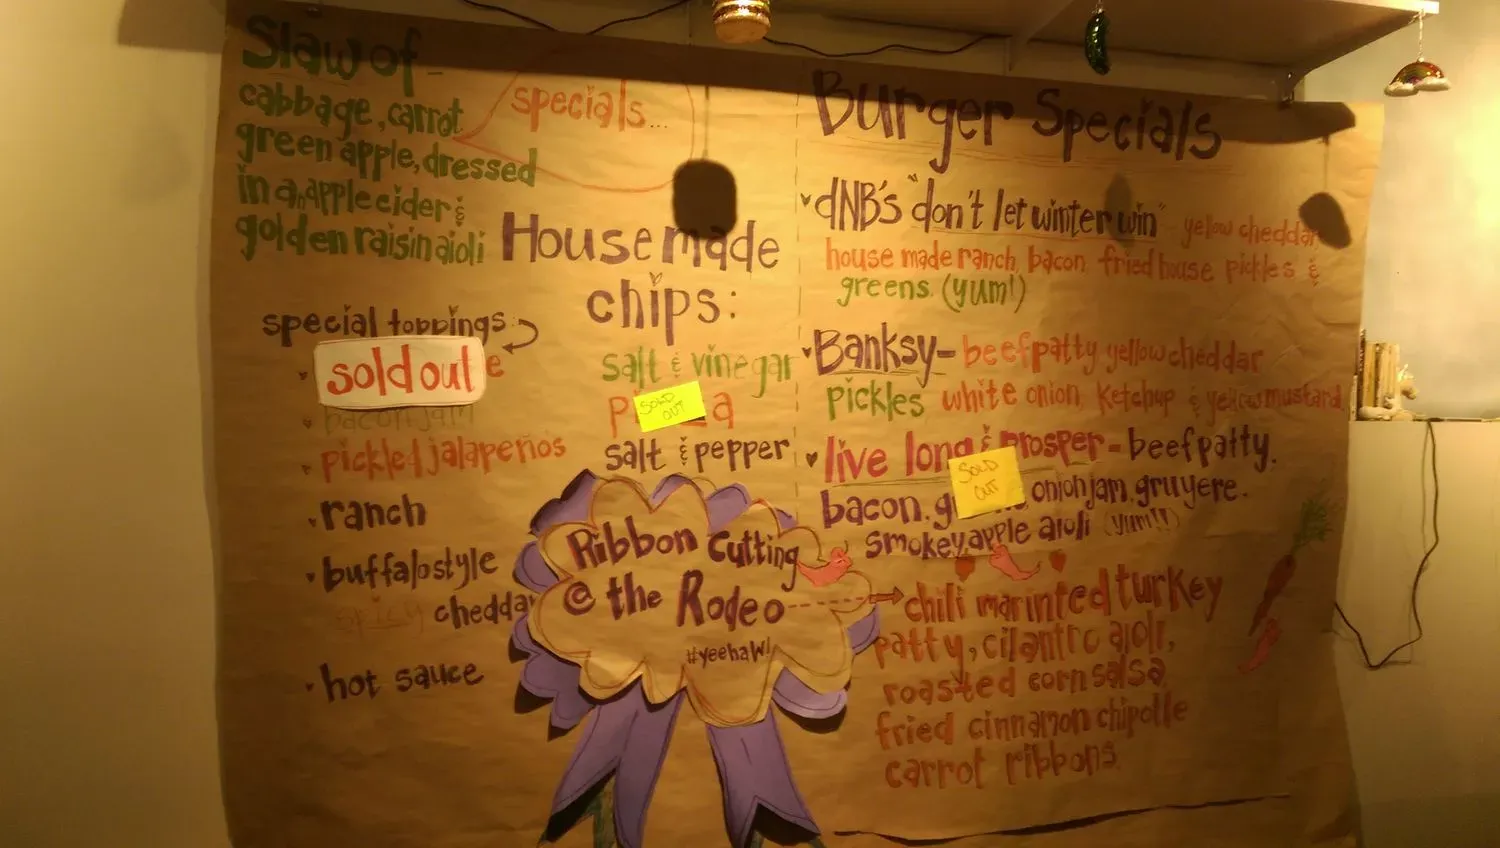 Slaw of -
cabbage, carrot
green apple, dressed
in an apple cider &
golden raisin aioli
specials...
special toppings
sold out e
bacon jam
pickled jalapeños
ranch
buffalo style
spicy cheddar
hot sauce
House made
chips:
salt & vinegar
SOLD OUT
salt & pepper
Ribbon Cutting
@ the Rodeo
#yeehaw!
Burger Specials
dNB's "don't let winter win" yellow cheddar
house made ranch, bacon, fried house pickles &
greens. (yum!)
Banksy- beef patty yellow cheddar
pickles white onion, ketchup & yellow mustard.
live long & prosper - beef patty.
SOLD OUT
bacon, onion jam, gruyere.
smokey apple aioli (yum!!)
chili marinted turkey
patty, cilantro aioli,
roasted corn salsa
fried cinnamon chipotle
carrot ribbons.